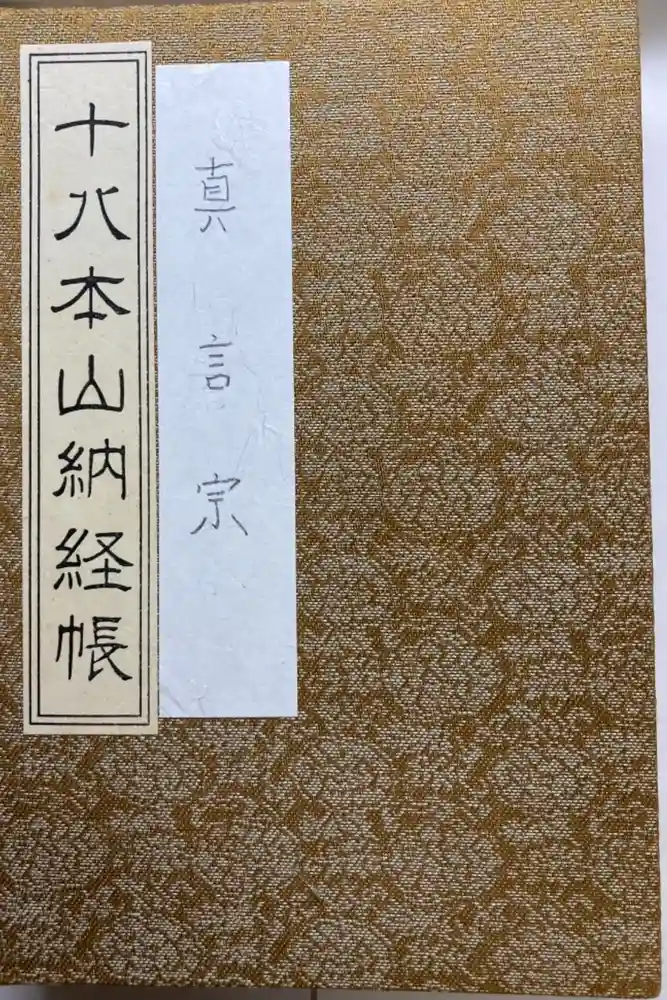 十八本山納経帳
真言宗